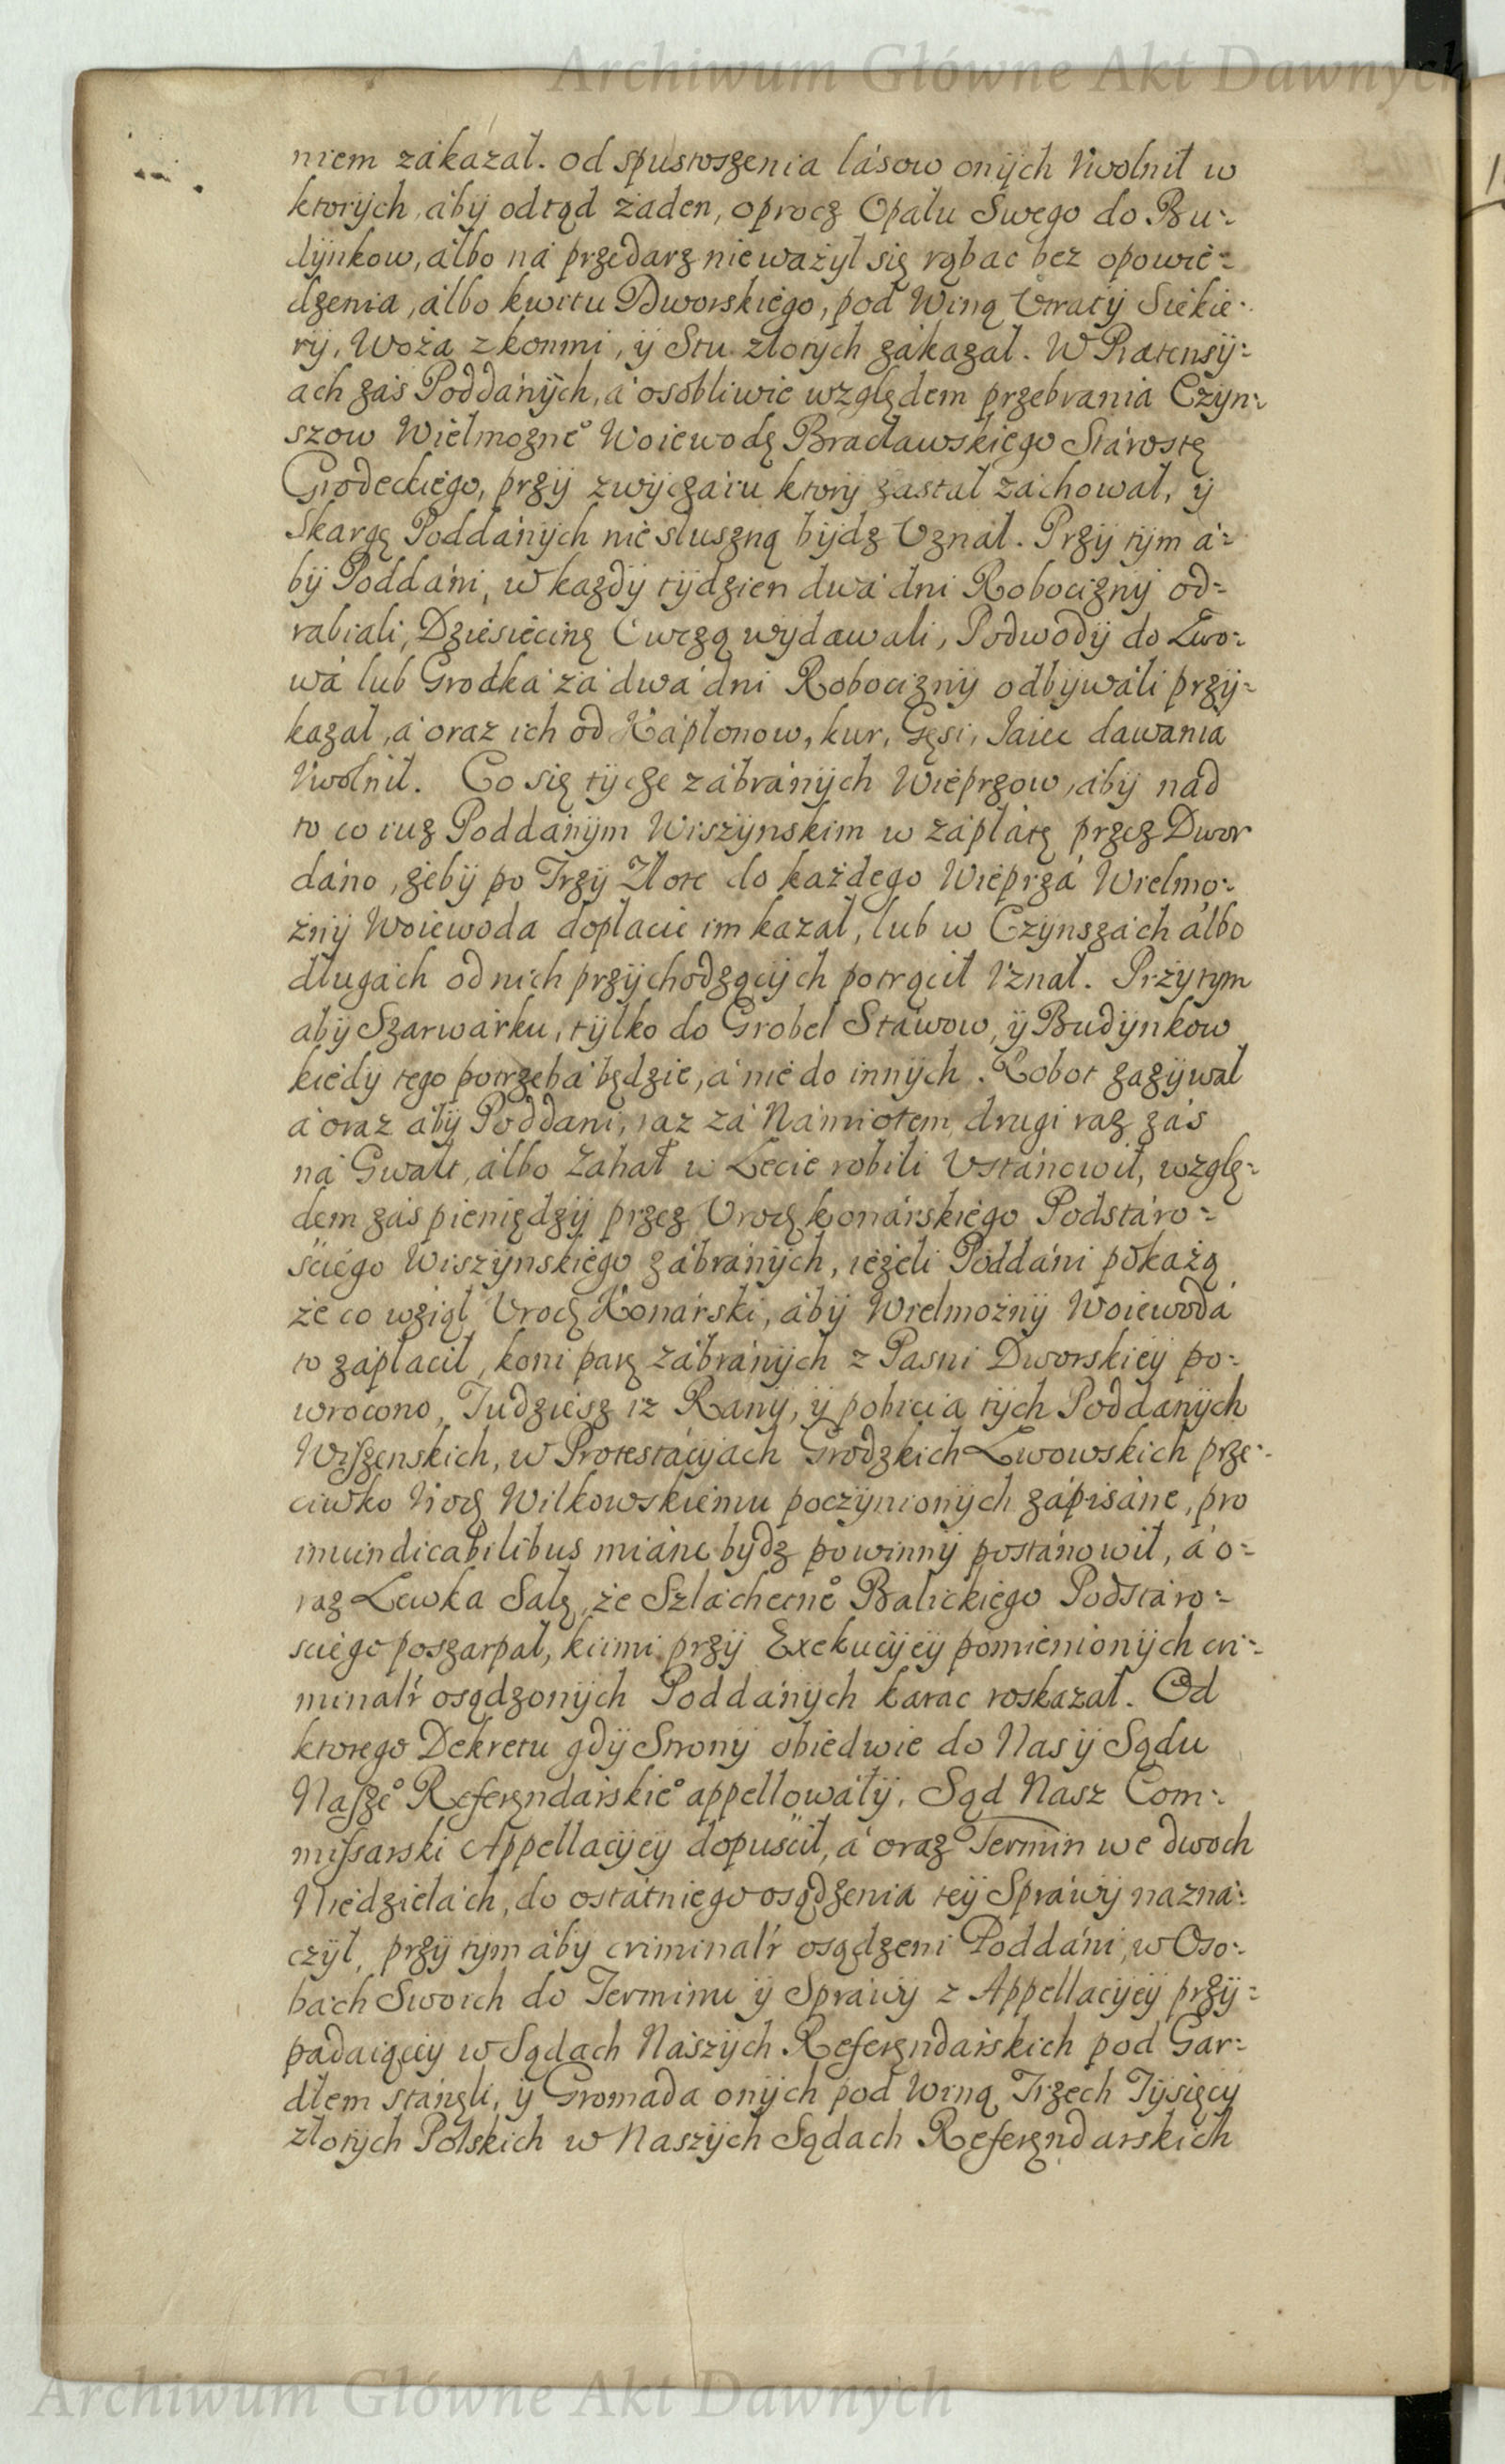 Archiwum Główne Akt Dawnych
niem zákázał. od spustoszenia lásow onÿch Vwolnił w
ktorÿch, ábÿ odtąd żaden, oprocz Opału Swego do Bu-
dÿnkow, álbo ná przedarz nie ważył się rąbac bez opowie-
dzenia, álbo kwitu Dworskiego, pod Winą Vtratÿ Siekie-
rÿ, Woza z konmi, ÿ Stu złotÿch zákazał. W Prætensÿ-
ach zás Poddánÿch, á osobliwie względem przebrania Czÿn-
szow Wielmożne° Woiewodę Bracławskiego Stárostę
Grodeckiego, przÿ zwÿczaiu ktorÿ zastał záchował, ÿ
Skargę Poddánÿch nie słuszną bÿdz Vznał. Przÿ tÿm á-
bÿ Poddáni, w kazdÿ tÿdzien dwá dni Robociznÿ od-
rabiali, Dziesięcinę Owczą wydawali, Podwodÿ do Lwo-
wá lub Grodká zá dwá dni Robociznÿ odbÿwáli przÿ-
kazał, á oraz ich od Káplonow, kur, Gęsi, Iaiec dawania
Vwolnił. Co się tÿcze zábránÿch Wieprzow, ábÿ nád
to co iuz Poddánÿm Wiszÿnskim w zápłátę przez Dwor
dáno, żebÿ po Trzÿ Złote do każdego Wieprzá Wielmo-
żnÿ Woiewoda dopłacic im kazał, lub w Czÿnszách álbo
długách od nich przÿchodzącÿch potrącił Vznał. Przÿtym
abÿ Szarwárku, tÿlko do Grobel Stáwow, ÿ Budÿnkow
kiedÿ tego potrzebá będzie, á nie do innÿch Robot zazÿwał
á oraz ábÿ Poddani, raz zá Námiotem drugi raz zás
ná Gwałt, álbo Zahał w Lecie robili Vstánowił, wzglę-
dem zás pieniędzÿ przez Vrodz Konárskiego Podstáro-
sciego Wiszÿnskiego zábránÿch, ieżeli Poddáni pokażą
że co wziął Vrodz Konárski, ábÿ Wielmożnÿ Woiewodá
to zápłacił, koni parę zábránÿch z Pasni Dworskieÿ po-
wrocono, Tudziesz iz Ranÿ, ÿ pobicia tÿch Poddanÿch
Wiszenskich, w Protestácÿjach Grodzkich Lwowskich prze-
ciwko Vrodz Wilkowskiemu poczÿnionÿch zápisáne, pro
inuindicabilibus miáne bÿdz powinnÿ postánowił, á o-
raz Lewka Salę, że Szlachetne° Balickiego Podstáro-
sciego poszarpał, kiimi przÿ Exekucÿeÿ pomienionÿch cri-
minalr osądzonÿch Poddánÿch karac roskazał. Od
ktorego Dekretu gdÿ Stronÿ obiedwie do Nas ÿ Sądu
Nasze° Referendárskie° appellowáłÿ, Sąd Nasz Com-
missarski Appellacÿeÿ dopuscił, á oraz Termin we dwoch
Niedzielách, do ostátniego osądzenia teÿ Spráwÿ nazná-
czÿł, przÿ tym ábÿ criminalr osądzeni Poddáni, w Oso-
bách Swoich do Terminu ÿ Spráwÿ z Appellacÿeÿ przÿ-
padaiąceÿ w Sądach Naszÿch Referendárskich pod Gar-
dłem stánęli, ÿ Gromada onÿch pod Winą Trzech Tÿsięcÿ
złotÿch Polskich w Naszÿch Sądach Referendarskich
Archiwum Główne Akt Dawnych